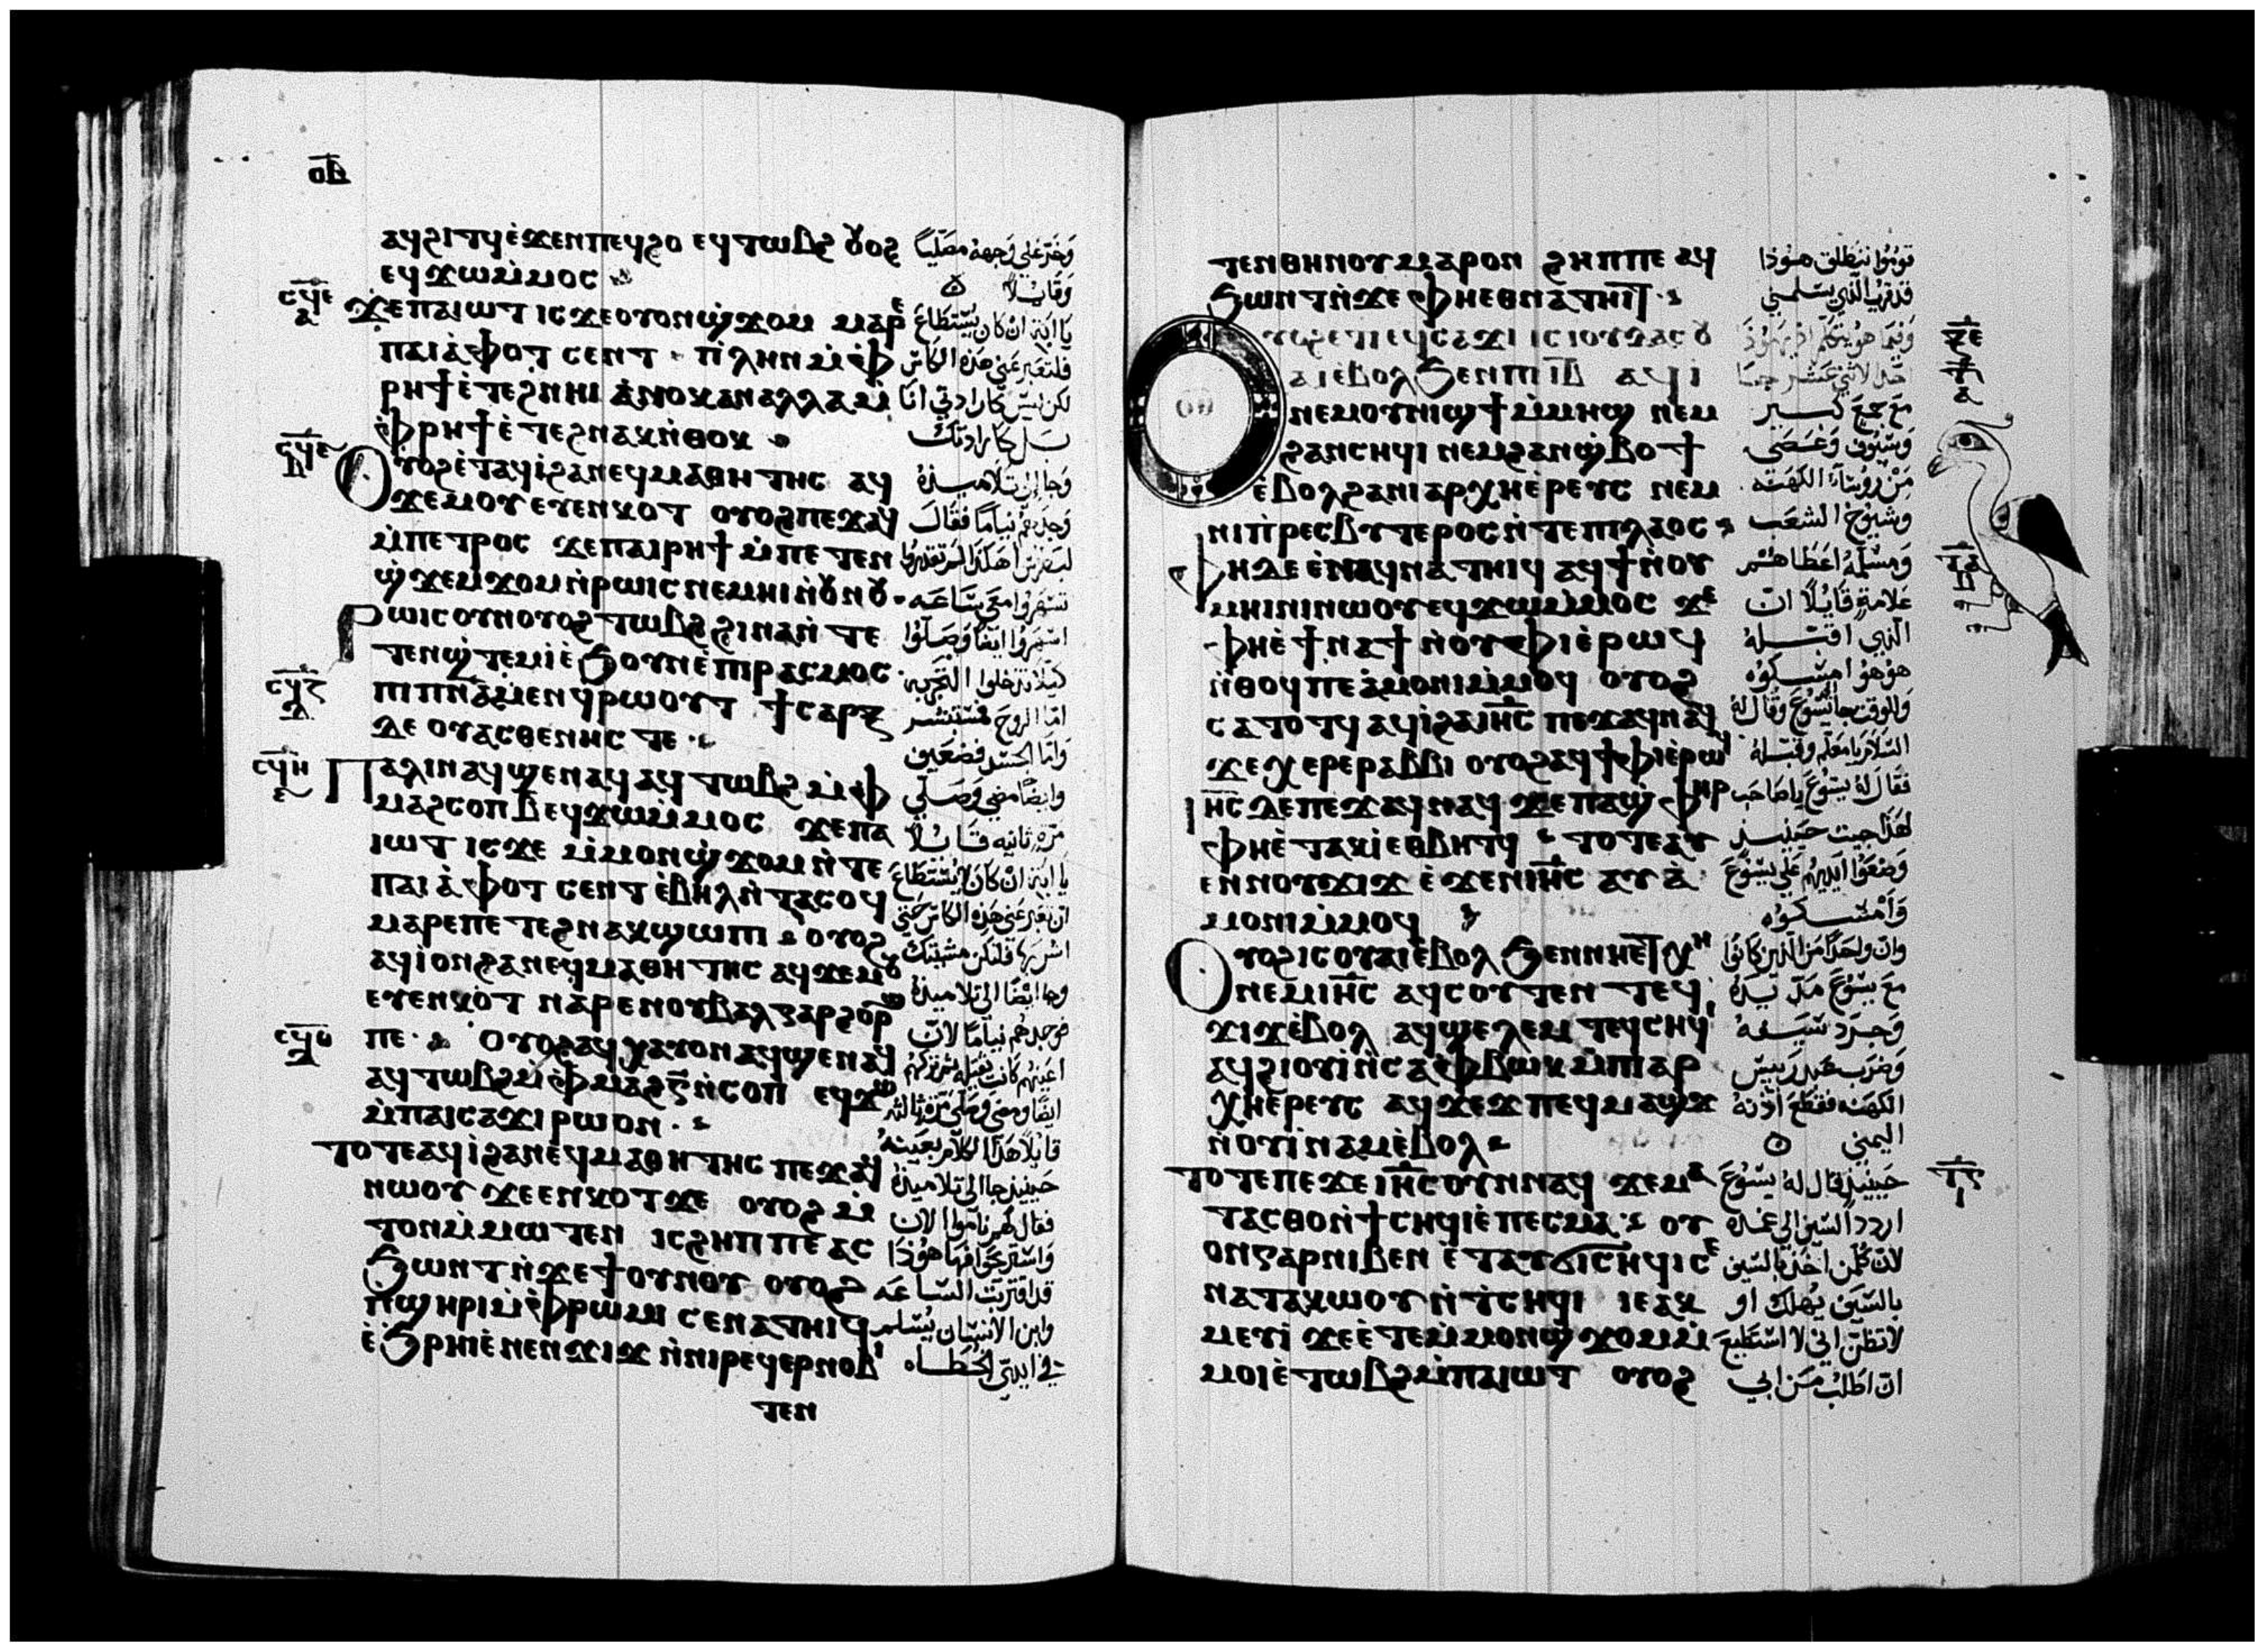 ⲟⲃ
ⲁϥϩⲓⲧϥ ⲉ̀ϫⲉⲛ ⲡⲉϥϩⲟ ⲉϥⲧⲱⲃϩ ⲟⲩⲟϩ
ⲉϥϫⲱ ⲙ̀ⲙⲟⲥ
ⲥϥⲉ
ⲁ
ϫⲉ ⲡⲁⲓⲱⲧ ⲓⲥϫⲉ ⲟⲩⲟⲛ ϣϫⲟⲙ ⲙⲁⲣⲉ
ⲡⲁⲓ ⲁ̀ⲫⲟⲧ ⲥⲉⲛⲧ ⲡⲗⲏⲛ ⲙ̀ⲫ
ⲣⲏϯ ⲉ̀ⲧⲉϩⲛⲏⲓ ⲁⲛⲟⲕ ⲁⲛ ⲁⲗⲗⲁ ⲙ̀
ⲫⲣⲏϯ ⲉ̀ⲧⲉϩⲛⲁⲕ ⲛ̀ⲑⲟⲕ
ⲟⲩⲟϩ ⲉ̀ⲧⲁϥⲓ̀ ϩⲁ ⲛⲉϥⲙⲁⲑⲏⲧⲏⲥ ⲁϥ
ϫⲉⲙⲟⲩ ⲉⲩⲉⲛⲕⲟⲧ ⲟⲩⲟϩ ⲡⲉϫⲁϥ
ⲙ̀ⲡⲉⲧⲣⲟⲥ ϫⲉ ⲡⲁⲓⲣⲏϯ ⲙ̀ⲡⲉⲧⲉⲛ
ϣϫⲉⲙϫⲟⲙ ⲛ̀ⲣⲱⲓⲥ ⲛⲉⲙⲏⲓ ⲛ̀ⲟⲩⲛⲟⲩ
ⲣⲱⲓⲥ ⲟⲩⲛ ⲟⲩⲟϩ ⲧⲱⲃϩ ϩⲓⲛⲁ ⲛ̀ⲧⲉ
ⲧⲉⲛϣⲧⲉⲙⲓ̀ ⲉ̀ϧⲟⲩⲛ ⲉ̀ⲡⲓⲣⲁⲥⲙⲟⲥ
ⲥϥⲍ
ⲇ
ⲡⲓⲡⲛⲁ ⲙⲉⲛ ϥⲣⲱⲟⲩⲧ ϯⲥⲁⲣⲝ
ⲇⲉ ⲟⲩⲁⲥⲑⲉⲛⲏⲥ ⲧⲉ
ⲥϥⲏ
ⲡⲁⲗⲓⲛ ⲁϥϣⲉⲛⲁϥ ⲁϥⲧⲱⲃϩ ⲙ̀ⲫ
ⲙⲁϩⲥⲟⲡ ⲃ ⲉϥϫⲱ ⲙ̀ⲙⲟⲥ ϫⲉ ⲡⲁ
ⲓⲱⲧ ⲓⲥϫⲉ ⲙ̀ⲙⲟⲛ ϣϫⲟⲙ ⲛ̀ⲧⲉ
ⲡⲁⲓ ⲁ̀ⲫⲟⲧ ⲥⲉⲛⲧ ⲉ̀ⲃⲏⲗ ⲛ̀ⲧⲁⲥⲟϥ
ⲙⲁⲣⲉ ⲡⲉⲧⲉϩⲛⲁⲕ ϣⲱⲡⲓ ⲟⲩⲟϩ
ⲁϥⲓ̀ ⲟⲛ ϩⲁ ⲛⲉϥⲙⲁⲑⲏⲧⲏⲥ ⲁϥϫⲉⲙⲟⲩ
ⲉⲩⲉⲛⲕⲟⲧ ⲛⲁⲣⲉ ⲛⲟⲩⲃⲁⲗ ⲅⲁⲣ ϩⲟⲣϣ
ⲡⲉ ⲟⲩⲟϩ ⲁϥⲭⲁⲩ ⲟⲛ ⲁϥϣⲉⲛⲁϥ
ⲁϥⲧⲱⲃϩ ⲙ̀ⲫⲙⲁϩⲅ̅ ⲛ̀ⲥⲟⲡ ⲉϥϫⲱ
ⲙ̀ⲡⲁⲓⲥⲁϫⲓ ⲣⲱ ⲟⲛ
ⲧⲟⲧⲉ ⲁϥⲓ̀ ϩⲁ ⲛⲉϥⲙⲁⲑⲏⲧⲏⲥ ⲡⲉϫⲁϥ
ⲛⲱⲟⲩ ϫⲉ ⲉⲛⲕⲟⲧ ϫⲉ ⲟⲩⲟϩ ⲙ̀
ⲧⲟⲛ ⲙ̀ⲙⲱⲧⲉⲛ ⲓⲥ ϩⲏⲡⲡⲉ ⲁⲥ
ϧⲱⲛⲧ ⲛ̀ϫⲉ ϯⲟⲩⲛⲟⲩ ⲟⲩⲟϩ
ⲡϣⲏⲣⲓ ⲙ̀ⲫⲣⲱⲙⲓ ⲥⲉⲛⲁⲧⲏⲓϥ
ⲉ̀ϧⲣⲏⲓ ⲉ̀ⲛⲉⲛϫⲓϫ ⲛ̀ⲛⲓⲣⲉϥⲉⲣⲛⲟⲃⲓ
ⲧⲉⲛ
وخر على وجهه مصليا
وقايلا
يا ابتِ ان كان يستطاع
فلتعبر عني هذه الكاس
لكن ليس كارادتي انا
بل كارادتك
وجا الى تلاميذه
وجدهم نياما فقال
لبطرس اهكذا لم تقدروا
تسهروا معي ساعه
اسهروا ايضا وصلوا
كيلا تدخلوا التجربه
اما الروح فمستبشر
واما الجسد فضعيف
وايضا مضي وصلي
مره ثانيه قايلا
يا ابتِ ان كان لا يستطاع
ان تعبر عني هذه الكاس حتى
اشربها فلتكن مشيتك
وجا ايضا الى تلاميذه
فوجدهم نياما لان
اعينهم كانت ثقيله فتركهم
ايضا ومضي وصلى مره ثالثه
قايلا هذا الكلام بعينه
حينيذ جا الى تلاميذه
فقال لهم ناموا الان
واستريحوا فها هوذا
قد اقتربت الساعه
وابن الانسان يسلم
في ايدي الخطاه
ⲧⲉⲛ ⲑⲏⲛⲟⲩ ⲙⲁⲣⲟⲛ ϩⲏⲡⲡⲉ ⲁϥ
ϧⲱⲛⲧ ⲛ̀ϫⲉ ⲫⲏⲉⲑⲛⲁⲧⲏⲓⲧ
ⲟⲩⲟϩ ⲉⲧⲓ ⲉϥⲥⲁϫⲓ ⲓⲥ ⲓⲟⲩⲇⲁⲥ ⲟⲩ
ⲁⲓ ⲉ̀ⲃⲟⲗ ϧⲉⲛ ⲡⲓⲓⲃ ⲁϥⲓ
ⲛⲉⲙ ⲟⲩⲛⲓϣϯ ⲙ̀ⲙⲏϣ ⲛⲉⲙ
ϩⲁⲛⲥⲏϥⲓ ⲛⲉⲙ ϩⲁⲛϣⲃⲟϯ
ⲉ̀ⲃⲟⲗ ϩⲁ ⲛⲓⲁⲣⲭⲏⲉ̀ⲣⲉⲩⲥ ⲛⲉⲙ
ⲛⲓⲡⲣⲉⲥⲃⲩⲧⲉⲣⲟⲥ ⲛ̀ⲧⲉ ⲡⲓⲗⲁⲟⲥ
ⲫⲏ ⲇⲉ ⲉ̀ⲛⲁϥⲛⲁⲧⲏⲓϥ ⲁϥϯ ⲛ̀ⲟⲩ
ⲙⲏⲓⲛⲓ ⲛⲱⲟⲩ ⲉϥϫⲱ ⲙ̀ⲙⲟⲥ ϫⲉ
ⲫⲏ ⲉ̀ϯⲛⲁϯ ⲛ̀ⲟⲩⲫⲓ ⲉ̀ⲣⲱϥ
ⲛ̀ⲑⲟϥ ⲡⲉ ⲁ̀ⲙⲟⲛⲓ ⲙ̀ⲙⲟϥ ⲟⲩⲟϩ
ⲥⲁⲧⲟⲧϥ ⲁϥⲓ̀ ϩⲁ ⲓⲏⲥ ⲡⲉϫⲁϥ ⲛⲁϥ
ϫⲉ ⲭⲉⲣⲉ ⲣⲁⲃⲃⲓ ⲟⲩⲟϩ ⲁϥϯⲫⲓ ⲉ̀ⲣⲱϥ
ⲓⲏⲥ ⲇⲉ ⲡⲉϫⲁϥ ⲛⲁϥ ϫⲉ ⲡⲁϣⲫⲏⲣ
ⲫⲏ ⲉ̀ⲧⲁⲕⲓ̀ ⲉⲑⲃⲏⲧϥ ⲧⲟⲧⲉ ⲁⲩ
ⲉⲛ ⲛⲟⲩϫⲓϫ ⲉ̀ϫⲉⲛ ⲓⲏⲥ ⲁⲩⲁ̀
ⲙⲟⲛⲓ ⲙ̀ⲙⲟϥ
ⲟⲩⲟϩ ⲓⲥ ⲟⲩⲁⲓ ⲉ̀ⲃⲟⲗ ϧⲉⲛ ⲛⲏⲉⲧⲭⲏ
ⲛⲉⲙ ⲓⲏⲥ ⲁϥⲥⲟⲩⲧⲉⲛ ⲧⲉϥ
ϫⲓϫ ⲉ̀ⲃⲟⲗ ⲁϥϣⲉⲗⲉⲙ ⲧⲉϥⲥⲏϥⲓ
ⲁϥϩⲓⲟⲩⲓ̀ ⲛ̀ⲥⲁ ⲫⲃⲱⲕ ⲙ̀ⲡⲓⲁⲣ
ⲭⲏⲉ̀ⲣⲉⲩⲥ ⲁϥϫⲉϫ ⲡⲉϥⲙⲁϣϫ
ⲛ̀ⲟⲩⲓ̀ⲛⲁⲙ ⲉ̀ⲃⲟⲗ
ⲧⲟⲧⲉ ⲡⲉϫⲉ ⲓⲏⲥ ⲟⲩⲛ ⲛⲁϥ ϫⲉ ⲙⲁ
ⲧⲁⲥⲑⲟ ⲛ̀ϯⲥⲏϥⲓ ⲉ̀ⲡⲉⲥⲙⲁ ⲟⲩ
ⲟⲛ ⲅⲁⲣ ⲛⲓⲃⲉⲛ ⲉ̀ⲧⲁⲩϭⲓⲥⲏϥⲓ ⲥⲉ
ⲛⲁⲧⲁⲕⲱⲟⲩ ⲛ̀ⲧⲥⲏϥⲓ ⲓⲉ ⲁⲕ
ⲙⲉⲩⲓ̀ ϫⲉ ⲉ̀ⲧⲉ ⲙ̀ⲙⲟⲛ ϣϫⲟⲙ ⲙ̀
ⲙⲟⲓ ⲉ̀ⲧⲱⲃϩ ⲙ̀ⲡⲁⲓⲱⲧ ⲟⲩⲟϩ
قوموا ننطلق هوذا
قد قرب الذي يسلمني
وفيما هو يتكلم اذ يهوذا
احد الاثني عشر جا
مع جمع كبير
وسيوف وعصي
من روسا الكهنه
وشيوخ الشعب
ومسلمه اعطاهم
علامه قايلا ان
الذي اقبله
هو هو امسكوه
وللوقت جا يسوع وقال له
السلام يا معلم وقبله
فقال له يسوع يا صاحب
لهذا جيت حينيذ
وضعوا ايديهم على يسوع
وامسكوه
وان واحدا من الذين كانوا
مع يسوع مد يده
وجرد سيفه
وضرب عبد رييس
الكهنه فقطع اذنه
اليمني
حينيذ قال له يسوع
اردد السيف الى غمده
لان كل من اخذ بالسيف
بالسيف يهلك او
لا تظن اني لا استطيع
ان اطلب من ابي